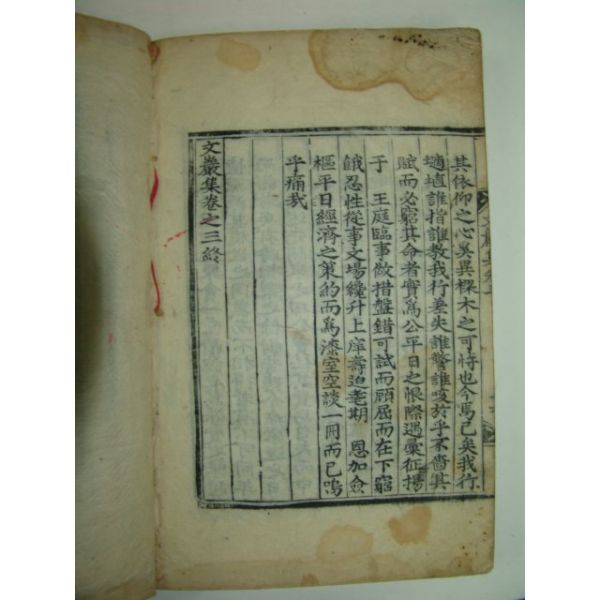 其依仰之心奚異樑木之可恃也今焉已矣我行
擿埴誰指誰教我行差失誰警誰咳於乎天嗇其
賦而必窮其命者實爲公平日之恨際遇彙征揚
于 王庭臨事做措盤錯可試而顧屈而在下窮
餓忍性從事文場纔升上庠壽迫耄期 恩加僉
樞平日經濟之策約而爲漆室空談一冊而已嗚
乎痛哉
文巖集卷之三終